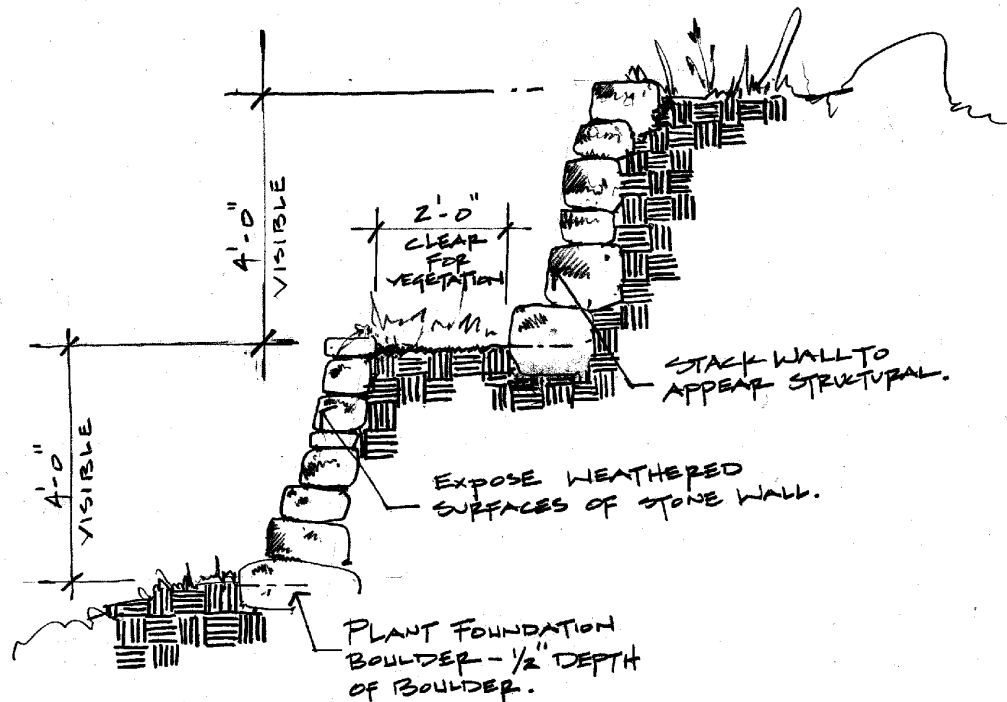 4'-0"
VISIBLE
2'-0"
CLEAR
FOR
VEGETATION
4'-0"
VISIBLE
STACK WALL TO
APPEAR STRUCTURAL.
EXPOSE WEATHERED
SURFACES OF STONE WALL.
PLANT FOUNDATION
BOULDER - 1/2" DEPTH
OF BOULDER.